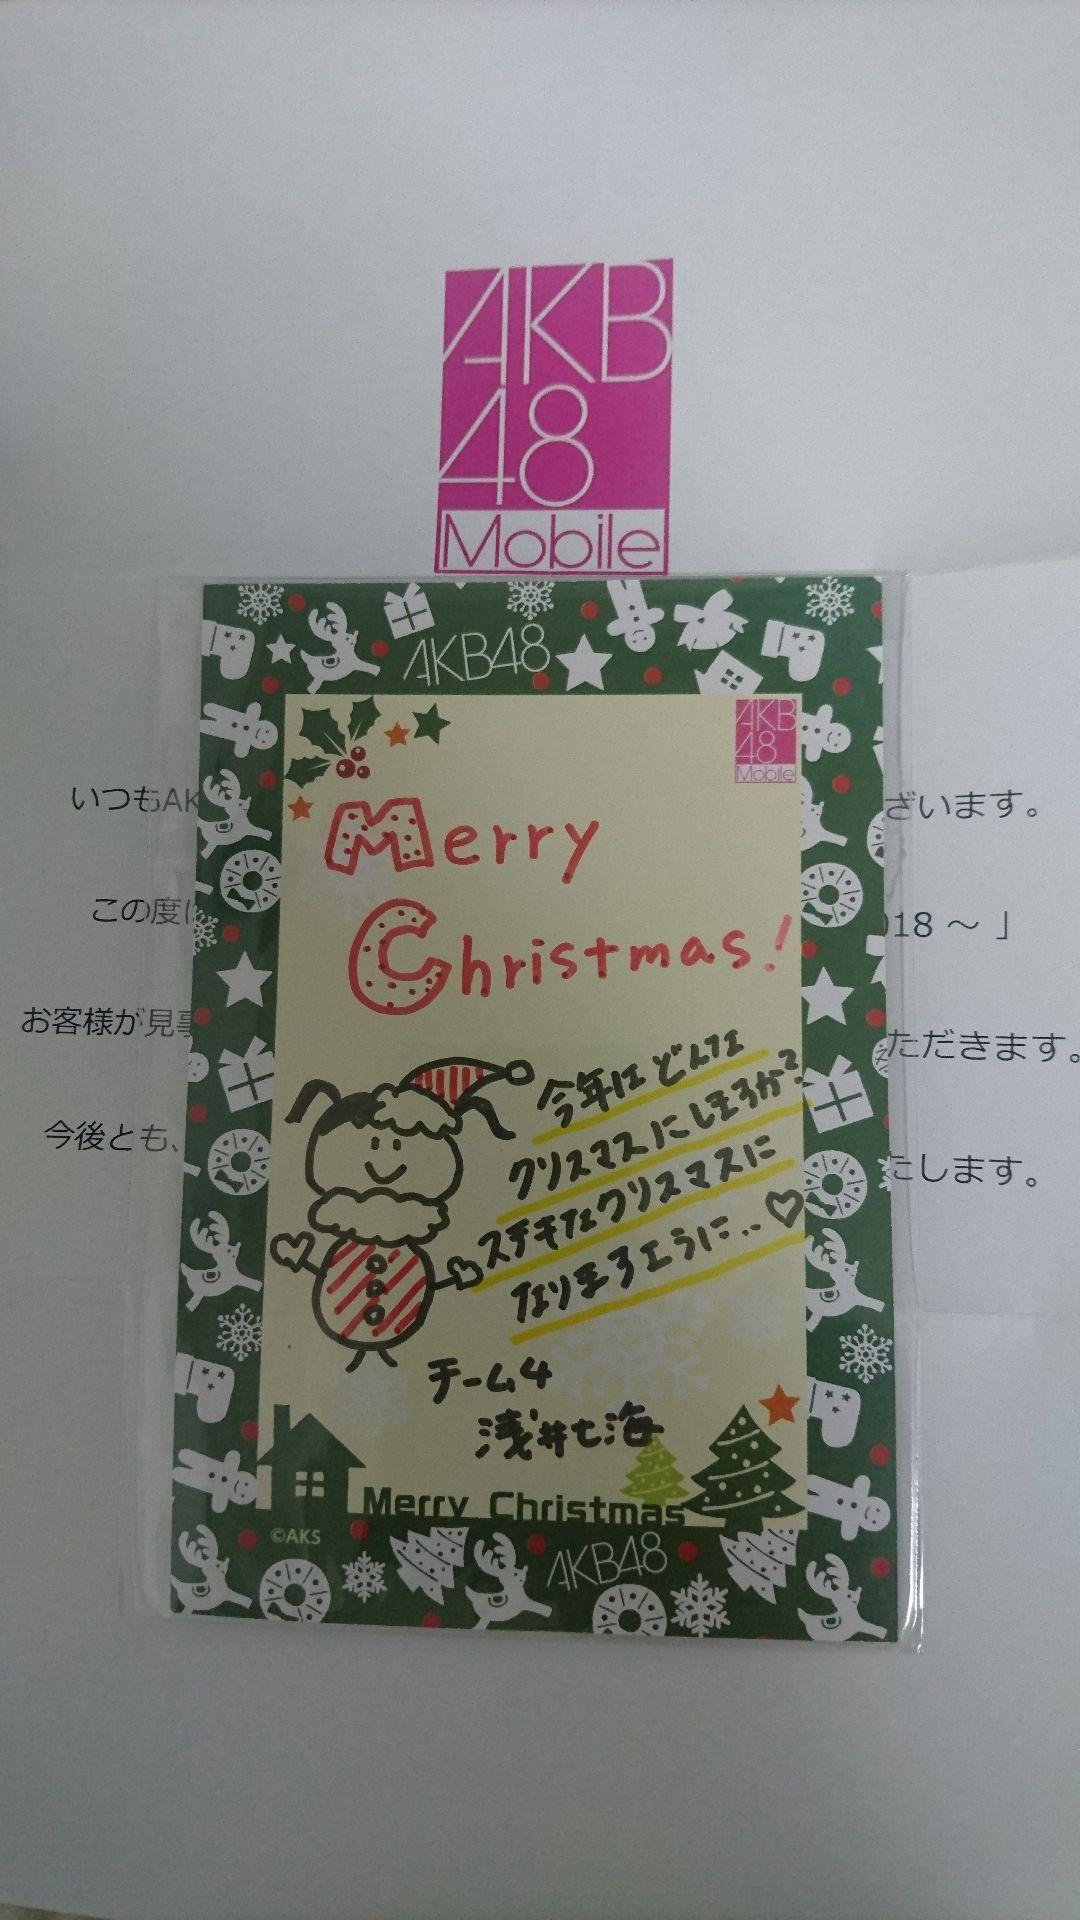 AKB
48
Mobile
AKB48
AKB
48
Mobile
いつもAK
ざいます。
この度
18 ～ 」
お客様が見事
ただきます。
今後とも、
たします。
Merry
Christmas!
今年はどんな
クリスマスにしようか?
ステキなクリスマスに
なりますように…♡
チーム4
浅井七海
Merry Christmas
©AKS
AKB48